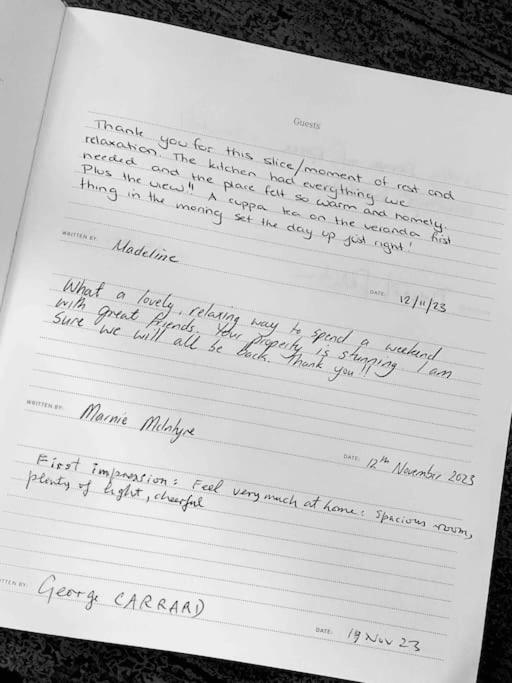 Guests
Thank you for this slice/moment of rest and
relaxation. The kitchen had everything we
needed and the place felt so warm and homely.
Plus the view!! A cuppa tea on the veranda first
thing in the morning set the day up just right!
WRITTEN BY: Madeline
DATE: 12/11/23
What a lovely, relaxing way to spend a weekend
with great friends. Your property is stunning I am
sure we will all be back. Thank you!!
WRITTEN BY: Marnie McIntyre
DATE: 12th November 2023
First impression: Feel very much at home: spacious room,
plenty of light, cheerful
TTEN BY: George CARRARD
DATE: 19 Nov 23